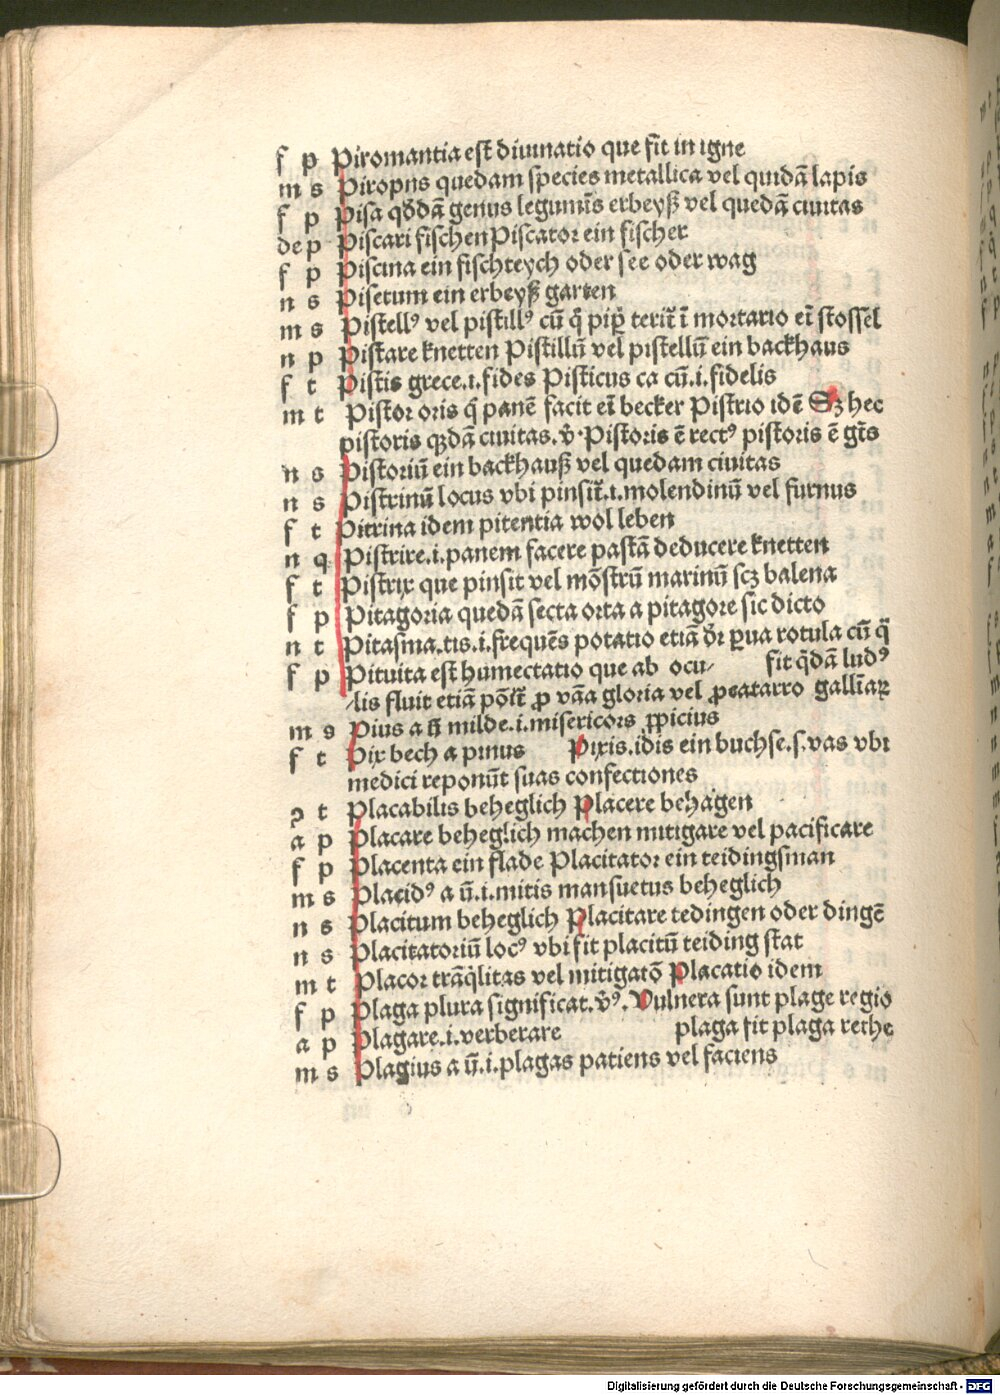 f p Piromantia est diuinatio que fit in igne
m s Piropus quedam species metallica vel quidā lapis
f p Pisa qḋdā genus legumīs erbeyß vel quedā ciuitas
de p Piscari fischen Piscator ein fischer
f p Piscina ein fischteych oder see oder wag
n s Pisetum ein erbeyß garten
m s Pistellꝰ vel pistillꝰ cū q̄ pip̲ terit᷑ ī mortario eī stossel
n p Pistare knetten Pistillū vel pistellū ein backhaus
f t Pistis grece.i.fides Pisticus ca cū.i.fidelis
m t Pistor oris q̄ panē facit eī becker Pistrio idē Sꝫ hec
pistoris qꝫdā ciuitas.v̄.Pistoris ē rectꝰ pistoris ē gt̄s
n s Pistoriū ein backhauß vel quedam ciuitas
n s Pistrinū locus vbi pinsit᷑.i.molendinū vel furnus
f t Pitrina idem pitentia wol leben
n q Pistrire.i.panem facere pastā deducere knetten
f t Pistrix que pinsit vel mōstrū marinū scꝫ balena
f p Pitagoria quedā secta orta a pitagore sic dicto
n t Pitasma.tis.i.frequēs potatio etiā dr̄ ꝑua rotula cū q̄
f p Pituita est humectatio que ab ocu/ fit q̄dā ludꝰ
/lis fluit etiā pōit᷑ ꝓ vāa gloria vel ꝓcatarro gallīaꝝ
m s Pius a ū milde.i.misericors ꝓpicius
f t Pix bech a pinus Pixis.idis ein buchse.s.vas vbi
medici reponūt suas confectiones
ꝯ t Placabilis beheglich Placere behagen
a p Placare beheglich machen mitigare vel pacificare
f p Placenta ein flade Placitator ein teidingsman
m s Placidꝰ a ū.i.mitis mansuetus beheglich
n s Placitum beheglich Placitare tedingen oder dingē
n s Placitatoriū locꝰ vbi fit placitū teiding stat
m t Placor trāq̇litas vel mitigatō Placatio idem
f p Plaga plura significat.v̄ꝰ.Vulnera sunt plage regio
a p Plagare.i.verberare plaga fit plaga rethe
m s Plagius a ū.i.plagas patiens vel faciens
Digitalisierung gefördert durch die Deutsche Forschungsgemeinschaft - DFG